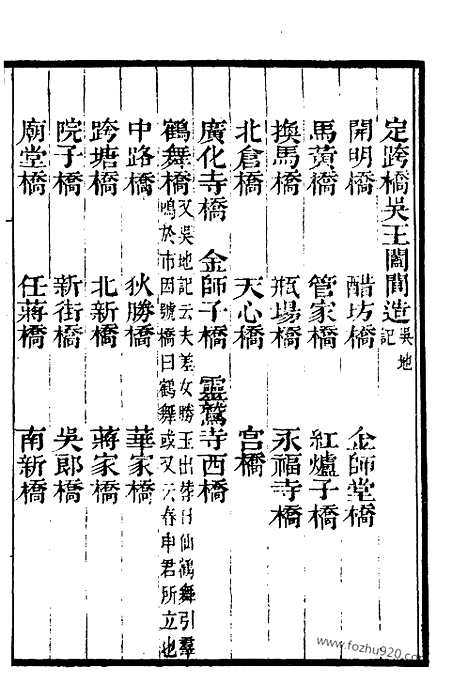 定跨橋吳王闔閭造吳地記
開明橋　醋坊橋　金師堂橋
馬黄橋　管家橋　紅爐子橋
換馬橋　瓶場橋　永福寺橋
北倉橋　天心橋　宫橋
廣化寺橋　金師子橋　靈鷲寺西橋
鶴舞橋又吳地記云夫差女勝玉出葬日仙鶴舞引羣鳴於市因號橋曰鶴舞或又云春申君所立也
中路橋　狄勝橋　華家橋
跨塘橋　北新橋　蔣家橋
院子橋　新街橋　吳郎橋
廟堂橋　任蔣橋　南新橋
www.fozhu920.com